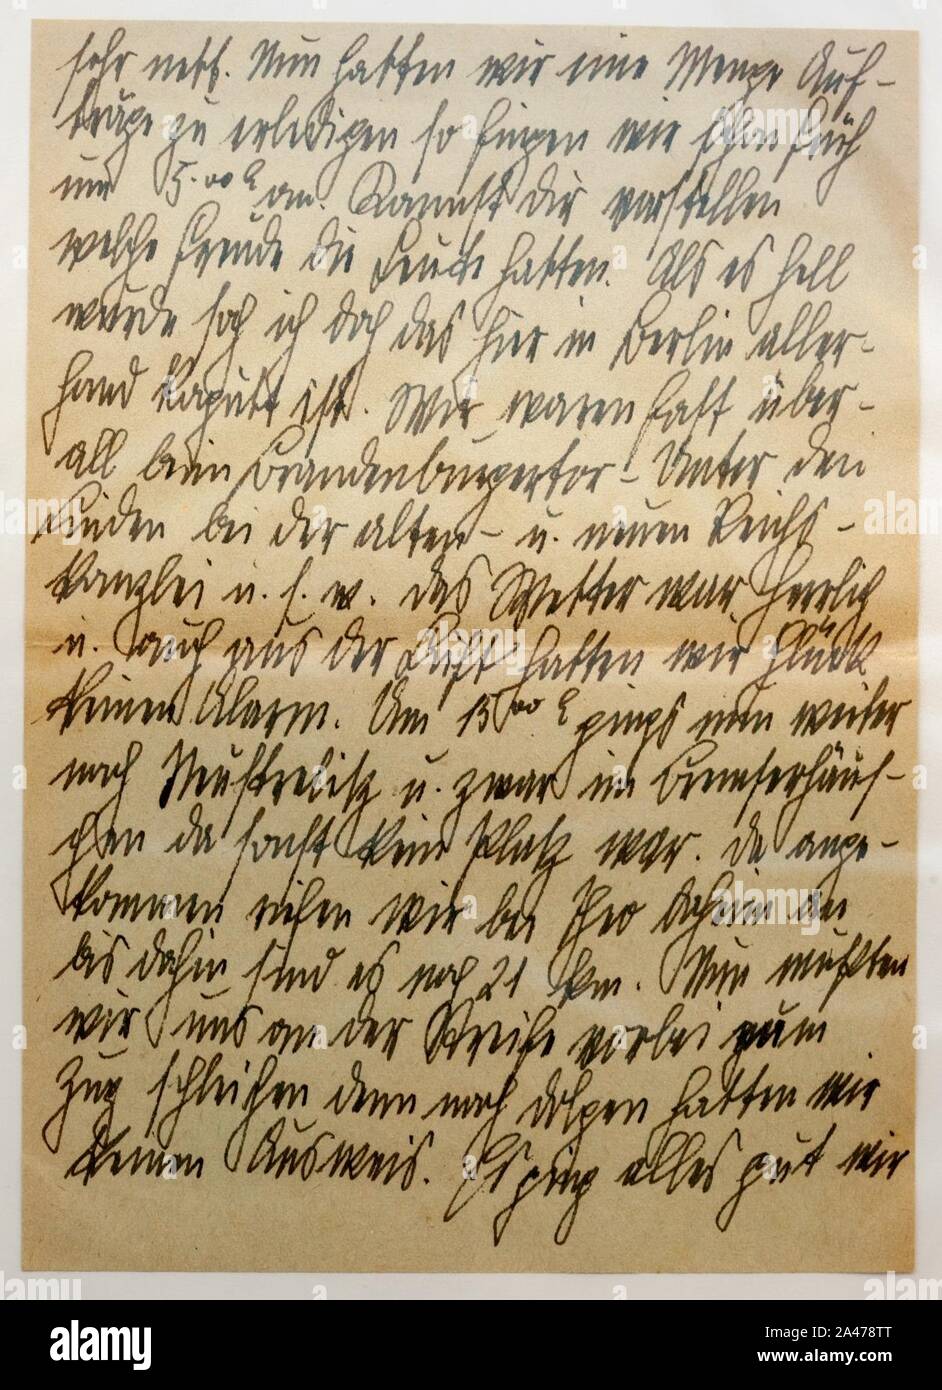 sehr nett. Nun hatten wir eine Menge Auf-
träge zu erledigen so fingen wir schon früh
um 5.00 h an. Kannst dir vorstellen
welche Freude die Leute hatten. Als es hell
wurde sah ich doch das hier in Berlin aller-
hand kaputt ist. Wir waren fast über-
all beim Brandenburgertor - Unter den
Linden bei der alten - u. neuen Reichs -
kanzlei u. s. w. das Wetter war herrlich
u. auch aus der Luft hatten wir Glück
keinen Alarm. Um 13 00 h gings nun weiter
nach Neustrelitz u. zwar im Bremserhäus-
chen da sonst kein Platz war. Da ange-
kommen riefen wir bei Theo an
bis dahin sind es noch 21 km. Nun mußten
wir uns an der Streife vorbei zum
Zug schleichen denn nach hatten wir
keinen Ausweis. Es ging alles gut wir
alamy
Image ID: 2A478TT
www.alamy.com